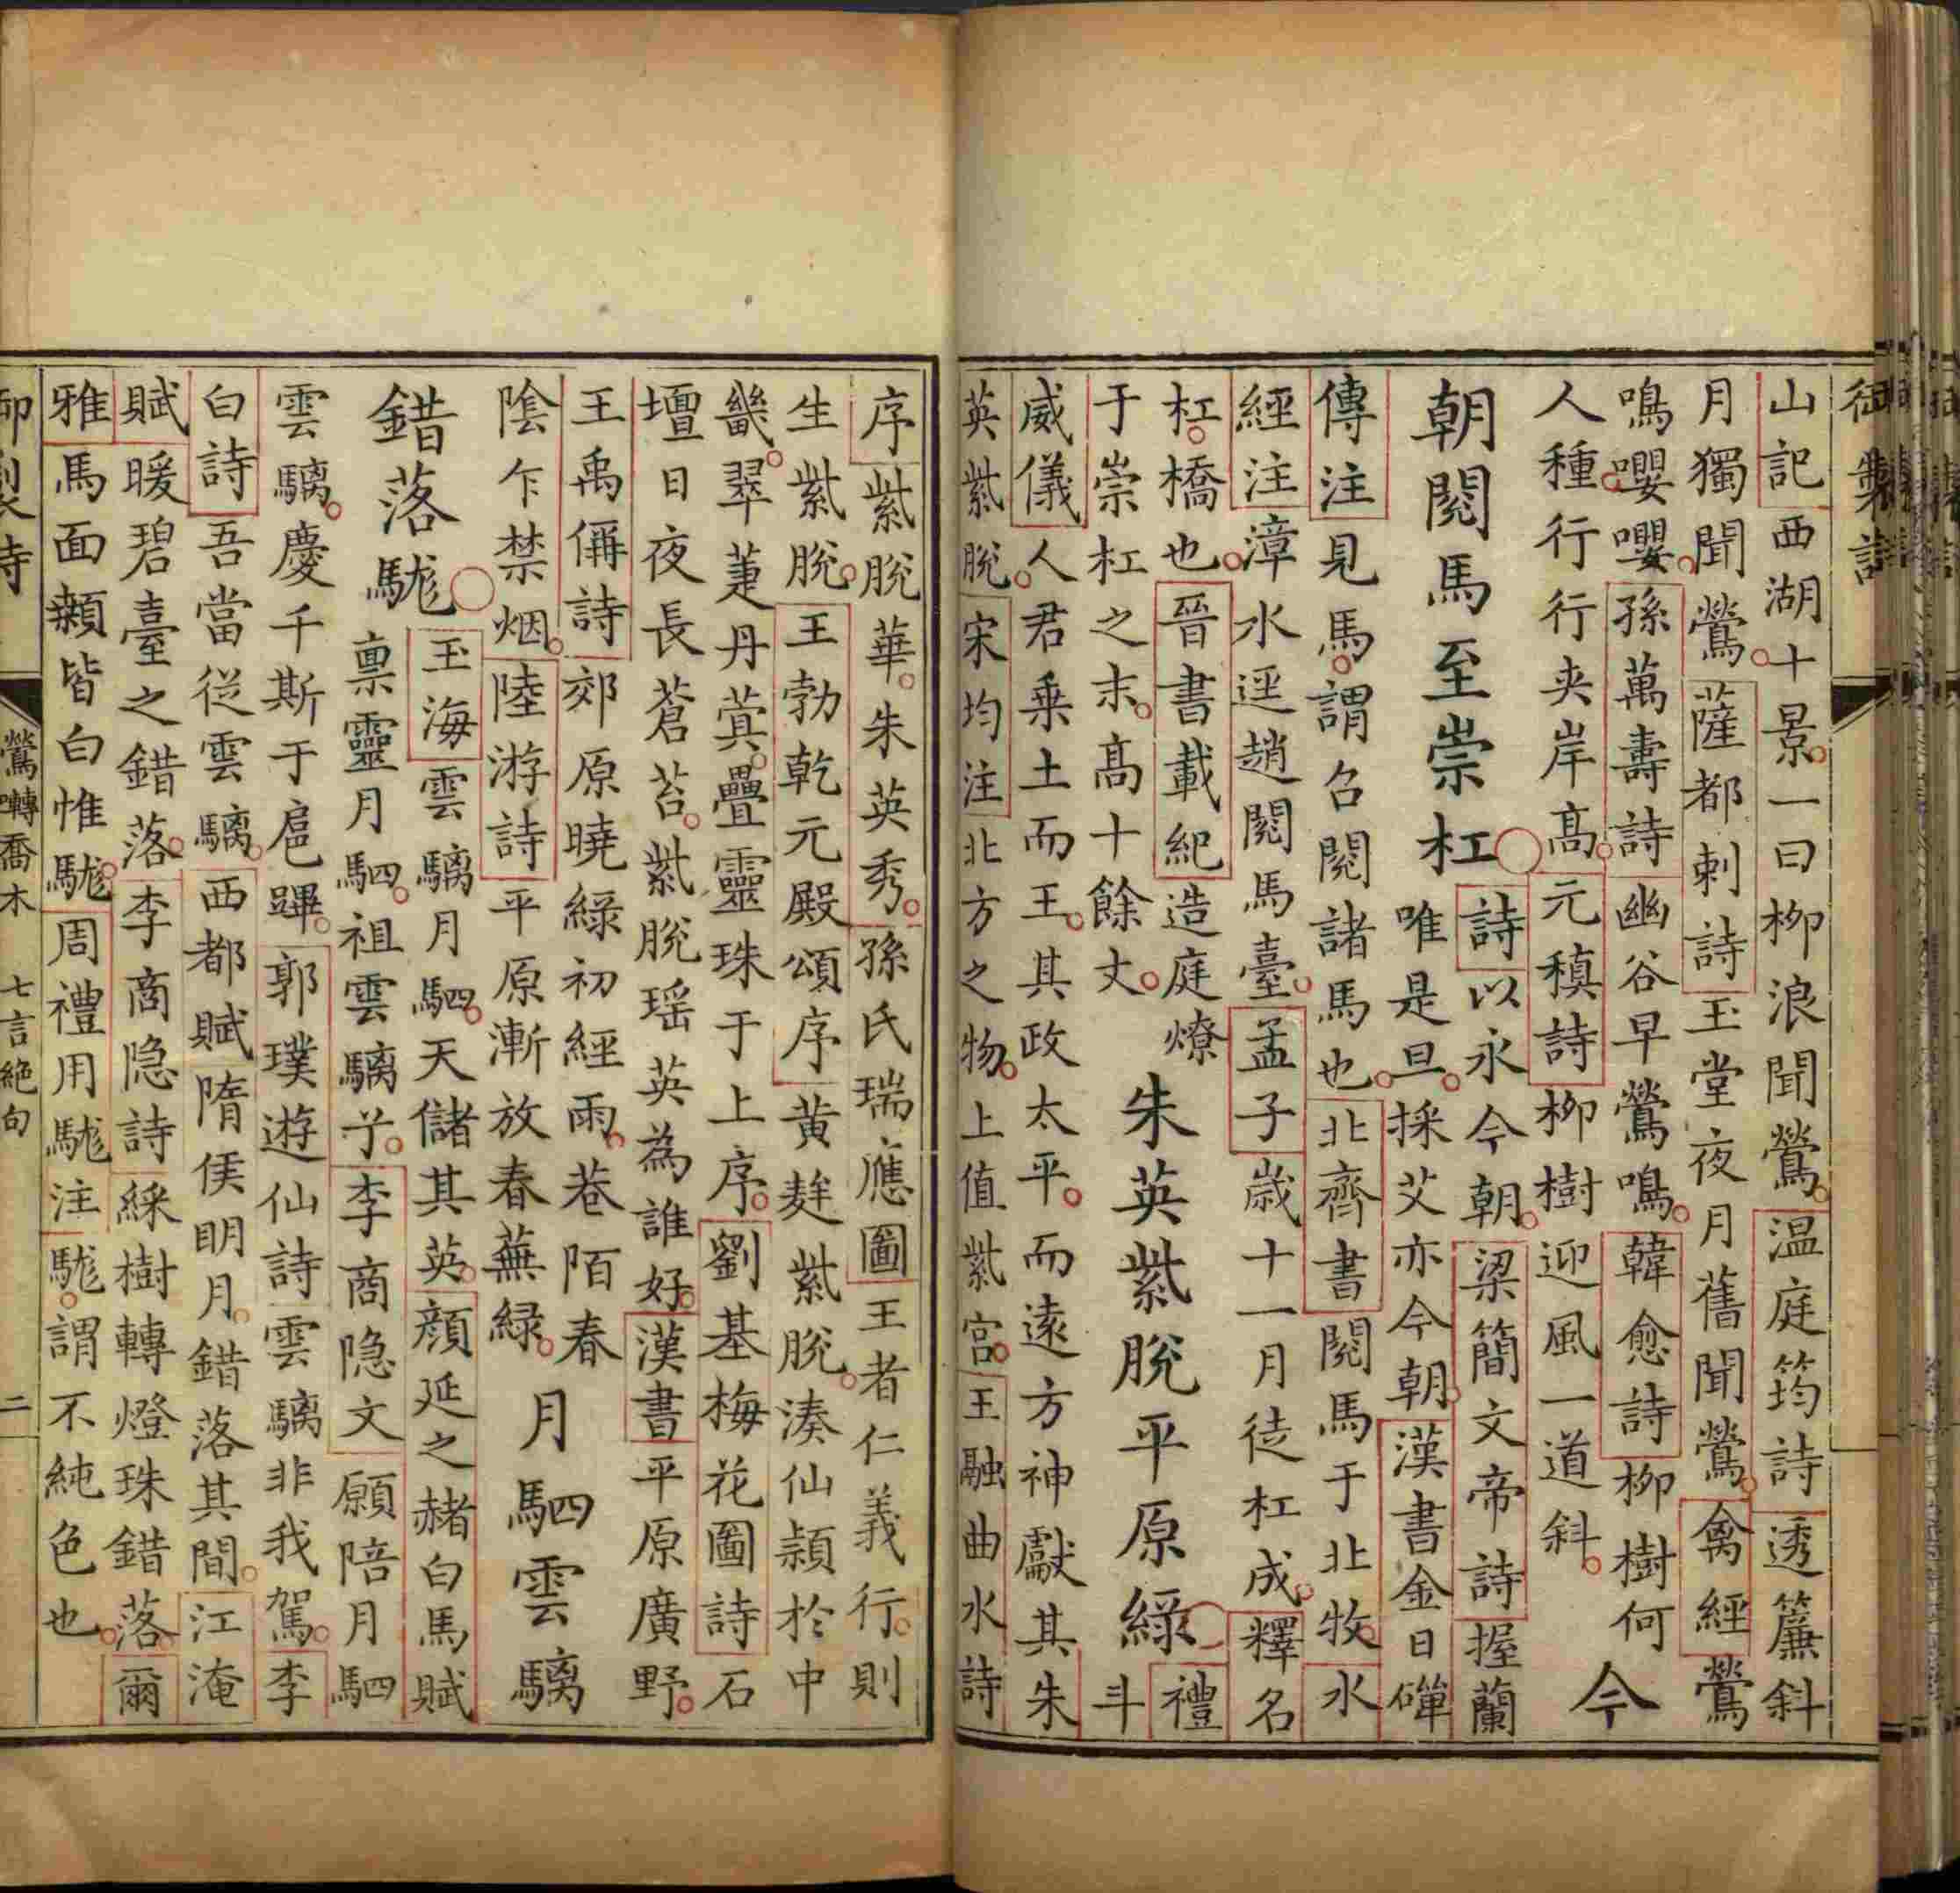 御製詩
山記西湖十景一曰柳浪聞鶯温庭筠詩透簾斜
月獨聞鶯薩都剌詩玉堂夜月舊聞鶯禽經鶯
鳴嚶嚶孫萬壽詩幽谷早鶯鳴韓愈詩柳樹何
人種行行夾岸高元稹詩柳樹迎風一道斜今
朝閱馬至崇杠詩以永今朝梁簡文帝詩握蘭
唯是旦採艾亦今朝漢書金日磾
傳注見馬謂召閱諸馬也北齊書閱馬于北牧水
經注漳水逕趙閱馬臺孟子歲十一月徒杠成釋名
杠橋也晉書載紀造庭燎
于崇杠之末高十餘丈朱英紫脫平原綠禮斗
威儀人君乘土而王其政太平而遠方神獻其朱
英紫脫宋均注北方之物上值紫宮王融曲水詩
序紫脫華朱英秀孫氏瑞應圖王者仁義行則
生紫脫王勃乾元殿頌序黃麰紫脫湊仙頴於中
畿翠萐丹蓂疊靈珠于上序劉基梅花圖詩石
壇日夜長蒼苔紫脫瑶英為誰好漢書平原廣野
王禹偁詩郊原曉綠初經雨巷陌春
陰乍禁烟陸游詩平原漸放春蕪綠月駟雲驪
錯落駹玉海雲驪月駟天儲其英顏延之赭白馬賦
禀靈月駟祖雲驪子李商隐文願陪月駟
雲驪慶千斯于扈蹕郭璞遊仙詩雲驪非我駕李
白詩吾當從雲驪西都賦隋侯明月錯落其間江淹
賦暖碧臺之錯落李商隐詩綵樹轉燈珠錯落爾
雅馬面顙皆白惟駹周禮用駹注駹謂不純色也
御製詩 鶯囀喬木 七言絶句 二